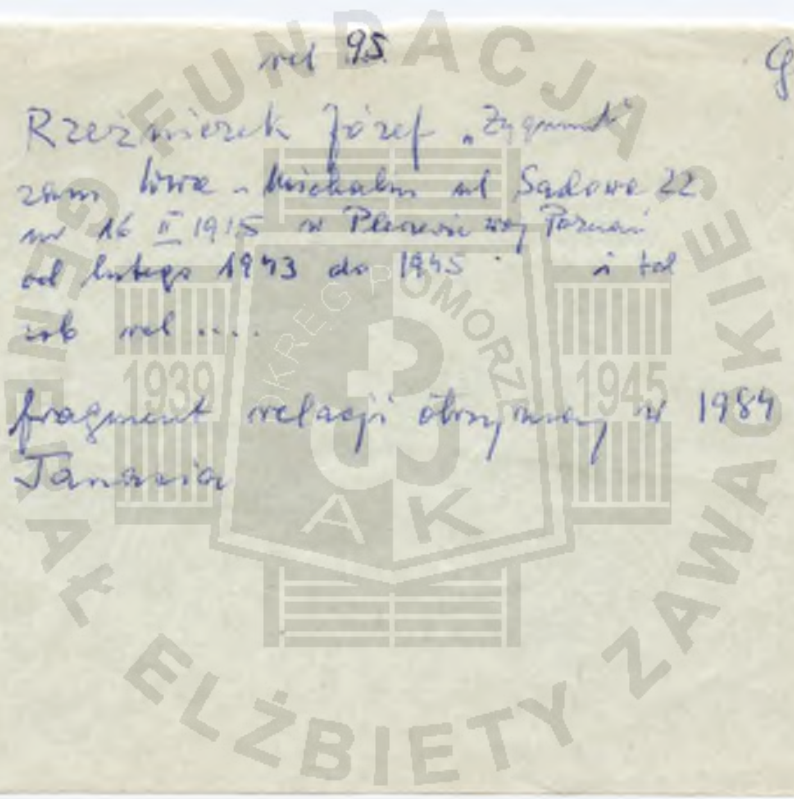 rel 95. G
Rzeźniczek Józef „Zygmunt"
zam Michalin ul Sądowa 22
ur 16 II 1915 w Pleszewie woj Poznań
od lutego 1943 do 1945 i tal
zob rel ....
fragment relacji otrzymany w 1984
Tanasia
FUNDACJA
GENERAŁ ELŻBIETY ZAWACKIEJ
OKRĘG POMORZE
1939 1945
AK